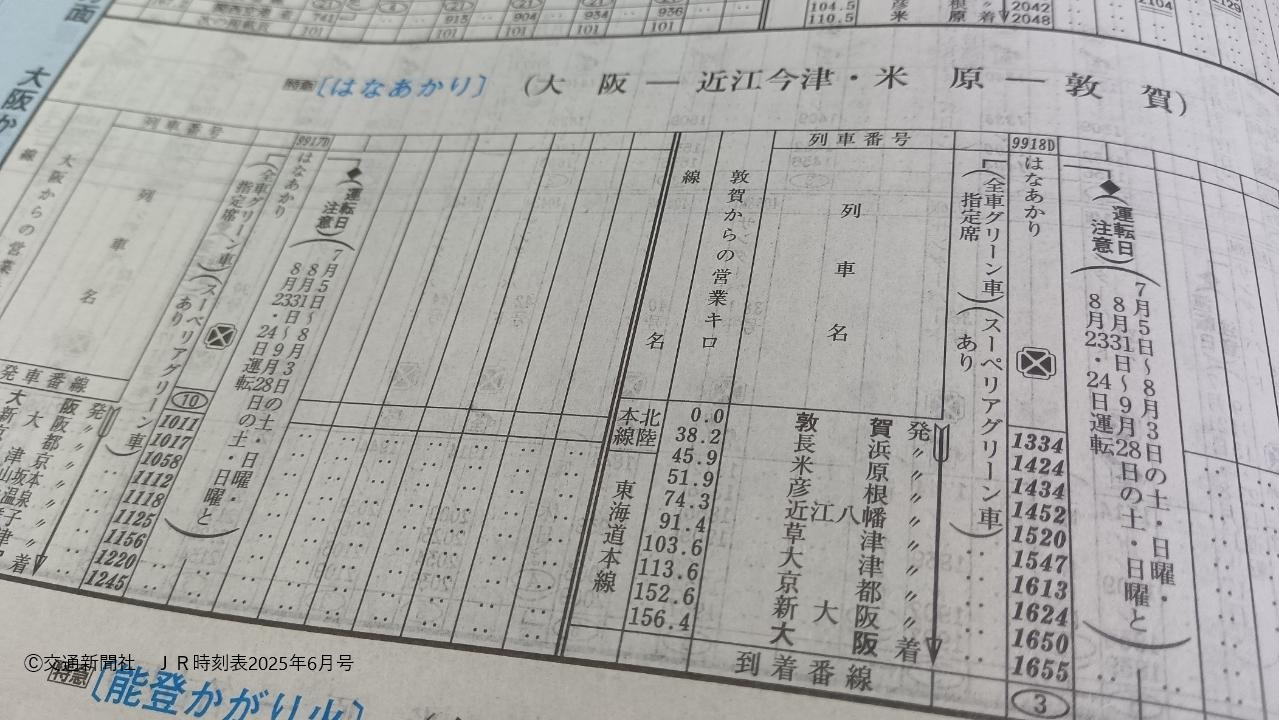 大阪か
741
915
904
934
936
101
101
101
101
101
104.5
110.5
彦根〃
米原着
2042
2048
2104
2129
特急〔はなあかり〕（大阪―近江今津・米原―敦賀）
列車番号
9917D
線
大阪からの営業
列車名
はなあかり
〔全車グリーン車〕指定席
（スーペリアグリーン車）あり
◆運転日注意
7月5日～8月3日の土・日曜・
8月31日～9月28日の土・日曜と
8月23・24日運転
発車番線
⑩
大阪発 1011
新大阪〃 1017
1058
1112
1118
1125
1156
1220
着 1245
列車番号
9918D
線名
敦賀からの営業キロ
列車名
はなあかり
〔全車グリーン車〕指定席
（スーペリアグリーン車）あり
◆運転日注意
7月5日～8月3日の土・日曜・
8月31日～9月28日の土・日曜と
8月23・24日運転
北陸本線
東海道本線
0.0 敦賀発 1334
38.2 長浜〃 1424
45.9 米原〃 1434
51.9 彦根〃 1452
74.3 近江八幡〃 1520
91.4 草津〃 1547
103.6 大津〃 1613
113.6 京都〃 1624
152.6 新大阪〃 1650
156.4 大阪着 1655
到着番線 ③
Ⓒ交通新聞社　ＪＲ時刻表2025年6月号
特急〔能登かがり火〕